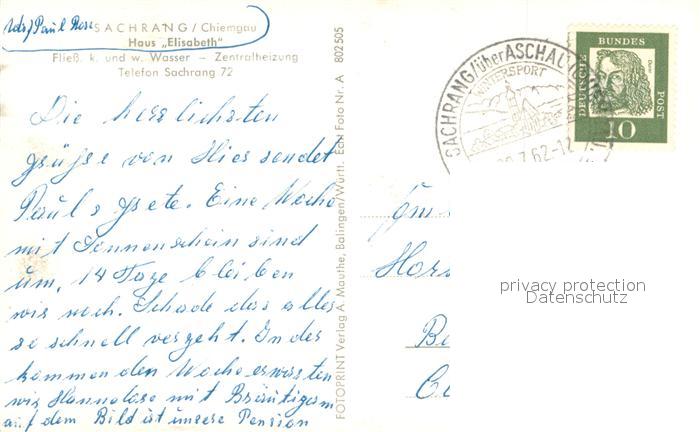 Abs/ Paul Rose
SACHRANG / Chiemgau
Haus „Elisabeth"
Fließ. k. und w. Wasser – Zentralheizung
Telefon Sachrang 72
Die herzlichsten
Grüße von hier sendet
Paul & Grete. Eine Woche
mit Sonnenschein sind
um, 14 Tage bleiben
wir noch. Schade das alles
so schnell vergeht. In der
kommenden Woche erwarten
wir Hannelose mit Bräutigam
auf dem Bild ist unsere Pension
FOTOPRINT Verlag A. Mauthe, Balingen/Württ. Echt Foto Nr. A 802505
SACHRANG / über ASCHAU
WINTERSPORT
.7.62-12
DEUTSCHE BUNDES POST
Dürer
10
Fam
Hors
Be
privacy protection
Datenschutz